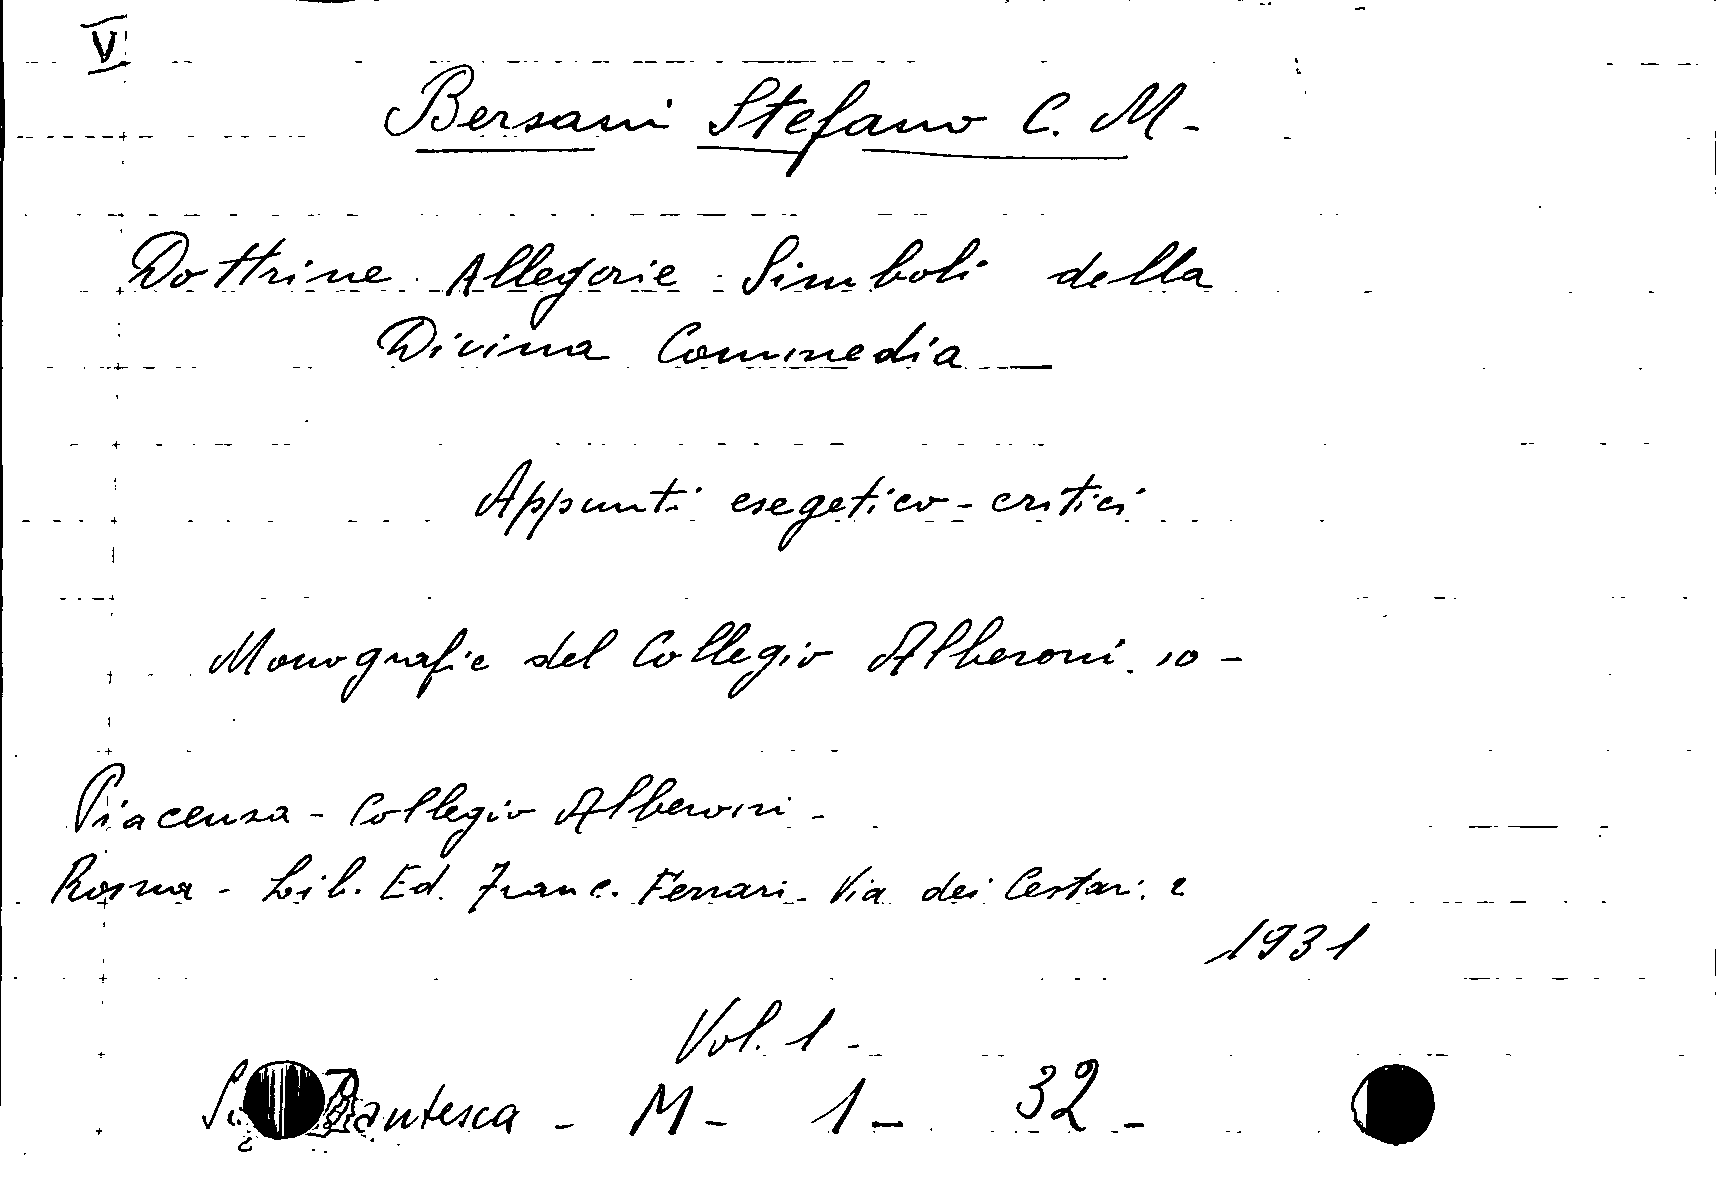 V
Bersani Stefano C. M.-
Dottrine Allegorie Simboli della
Divina Commedia —
Appunti esegetico-critici
Monografie del Collegio Alberoni. 10 -
Piacenza - Collegio Alberoni -
Roma - Lib. Ed. Franc. Ferrari. Via dei Cestari. 2
1931
Vol. 1 -
Dantesca - M - 1 - 32 -